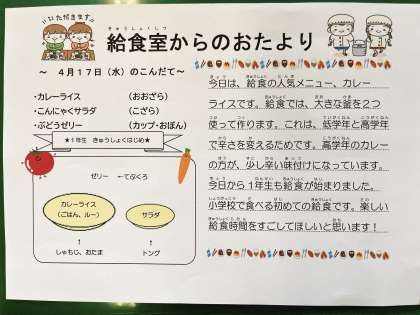 いただきます!!
給食室からのおたより
～ ４月１７日（水）のこんだて～
・カレーライス （おおざら）
・こんにゃくサラダ （こざら）
・ぶどうゼリー （カップ・おぼん）
★１年生 きゅうしょくはじめ★
ゼリー ←てぶくろ
カレーライス
（ごはん、ルー）
サラダ
しゃもじ、おたま
トング
今日は、給食の人気メニュー、カレー
ライスです。給食では、大きな釜を２つ
使って作ります。これは、低学年と高学年
で辛さを変えるためです。高学年のカレー
の方が、少し辛い味付けになっています。
今日から１年生も給食が始まりました。
小学校で食べる初めての給食です。楽しい
給食時間をすごしてほしいと思います！